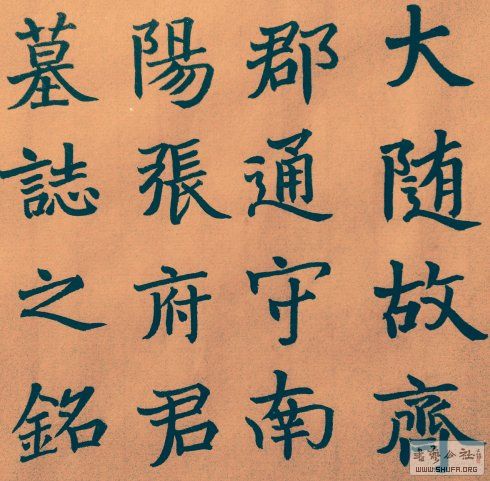 大随故齊
郡通守南
陽張府君
墓誌之銘
WWW.SHUFA.ORG